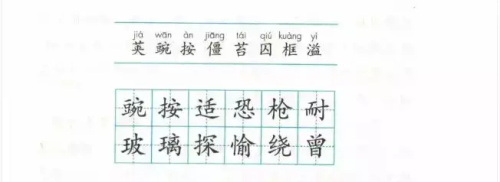 jiá wān àn jiāng tái qiú kuàng yì
荚 豌 按 僵 苔 囚 框 溢
豌 按 适 恐 枪 耐
玻 璃 探 愉 绕 曾